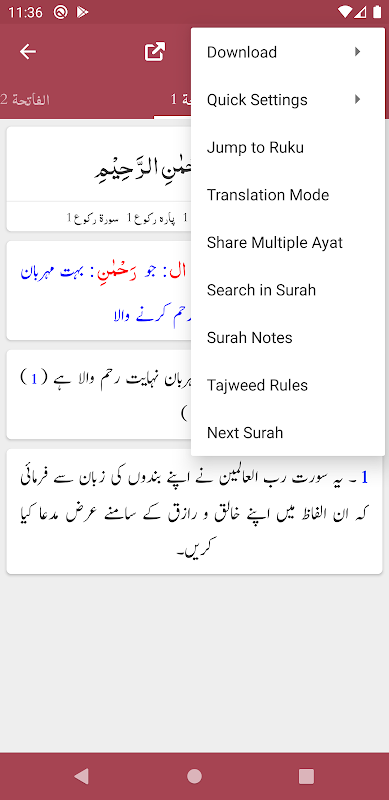 11:36
الفاتحة 2
ة 1
Download
Quick Settings
Jump to Ruku
Translation Mode
Share Multiple Ayat
Search in Surah
Surah Notes
Tajweed Rules
Next Surah
الرَّحِيْمِ
1 پارہ رکوع 1 سورۃ رکوع 1
ال : جو رَحْمٰنِ : بہت مہربان
رحم کرنے والا
نہایت رحم والا ہے ( 1 )
(
1 ۔ یہ سورت رب العالمین نے اپنے بندوں کی زبان سے فرمائی
کہ ان الفاظ میں اپنے خالق و رازق کے سامنے عرض مدعا کیا
کریں۔